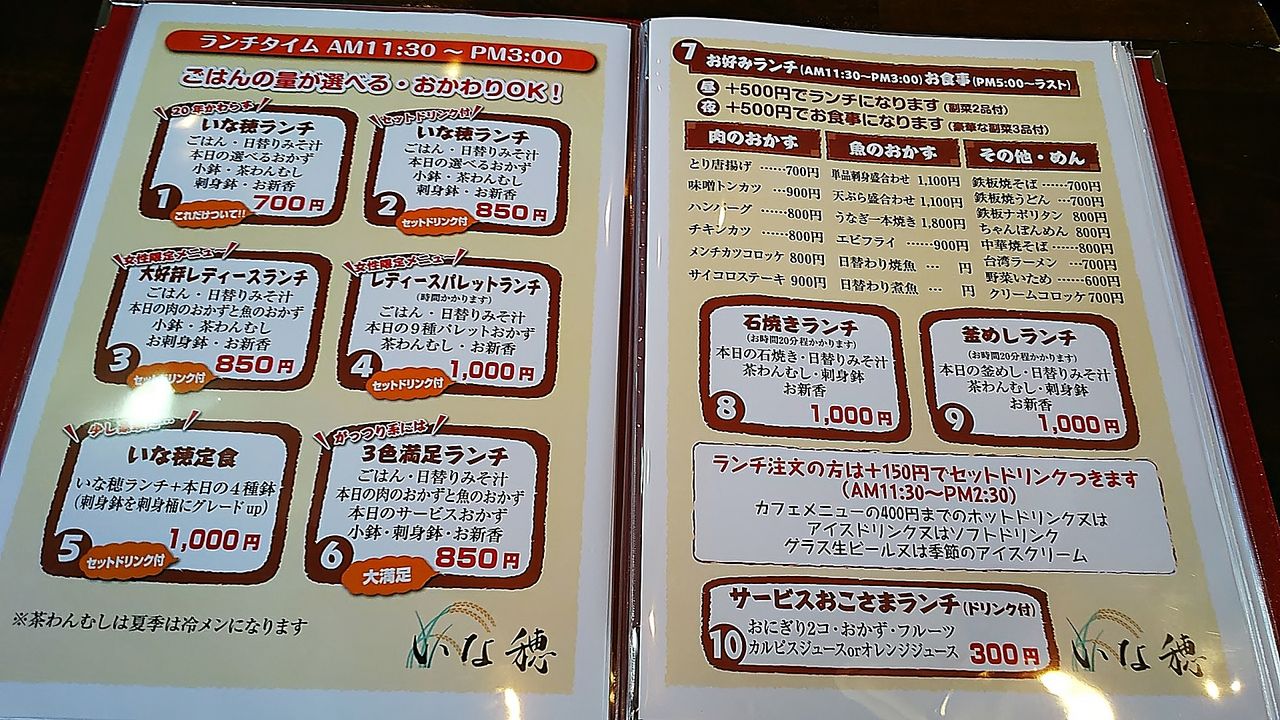 ランチタイム AM11:30 ～ PM3:00
ごはんの量が選べる・おかわりOK！
20年かわらず
いな穂ランチ
ごはん・日替りみそ汁
本日の選べるおかず
小鉢・茶わんむし
刺身鉢・お新香
1
700円
これだけついて!!
セットドリンク付
いな穂ランチ
ごはん・日替りみそ汁
本日の選べるおかず
小鉢・茶わんむし
刺身鉢・お新香
2
850円
セットドリンク付
女性限定メニュー
大好評レディースランチ
ごはん・日替りみそ汁
本日の肉のおかずと魚のおかず
小鉢・茶わんむし
お刺身鉢・お新香
3
850円
セットドリンク付
女性限定メニュー
レディースパレットランチ
(時間かかります)
ごはん・日替りみそ汁
本日の9種パレットおかず
茶わんむし・お新香
4
1,000円
セットドリンク付
少し
いな穂定食
いな穂ランチ+本日の4種鉢
(刺身鉢を刺身桶にグレードup)
5
1,000円
セットドリンク付
がっつり系には
3色満足ランチ
ごはん・日替りみそ汁
本日の肉のおかずと魚のおかず
本日のサービスおかず
小鉢・刺身鉢・お新香
6
850円
大満足
※茶わんむしは夏季は冷メンになります
いな穂
7 お好みランチ(AM11:30～PM3:00)お食事(PM5:00～ラスト)
昼 +500円でランチになります(副菜2品付)
夜 +500円でお食事になります(豪華な副菜3品付)
肉のおかず
とり唐揚げ ……700円
味噌トンカツ …900円
ハンバーグ ……800円
チキンカツ ……800円
メンチカツコロッケ 800円
サイコロステーキ 900円
魚のおかず
単品刺身盛合わせ 1,100円
天ぷら盛合わせ 1,100円
うなぎ一本焼き 1,800円
エビフライ ……900円
日替わり焼魚 … 円
日替わり煮魚 … 円
その他・めん
鉄板焼そば ……700円
鉄板焼うどん …700円
鉄板ナポリタン 800円
ちゃんぽんめん 800円
中華焼そば ……800円
台湾ラーメン …700円
野菜いため ……600円
クリームコロッケ 700円
石焼きランチ
(お時間20分程かかります)
本日の石焼き・日替りみそ汁
茶わんむし・刺身鉢
お新香
8
1,000円
釜めしランチ
(お時間20分程かかります)
本日の釜めし・日替りみそ汁
茶わんむし・刺身鉢
お新香
9
1,000円
ランチ注文の方は+150円でセットドリンクつきます
(AM11:30～PM2:30)
カフェメニューの400円までのホットドリンク又は
アイスドリンク又はソフトドリンク
グラス生ビール又は季節のアイスクリーム
サービスおこさまランチ(ドリンク付)
おにぎり2コ・おかず・フルーツ
カルピスジュースorオレンジジュース
10
300円
いな穂